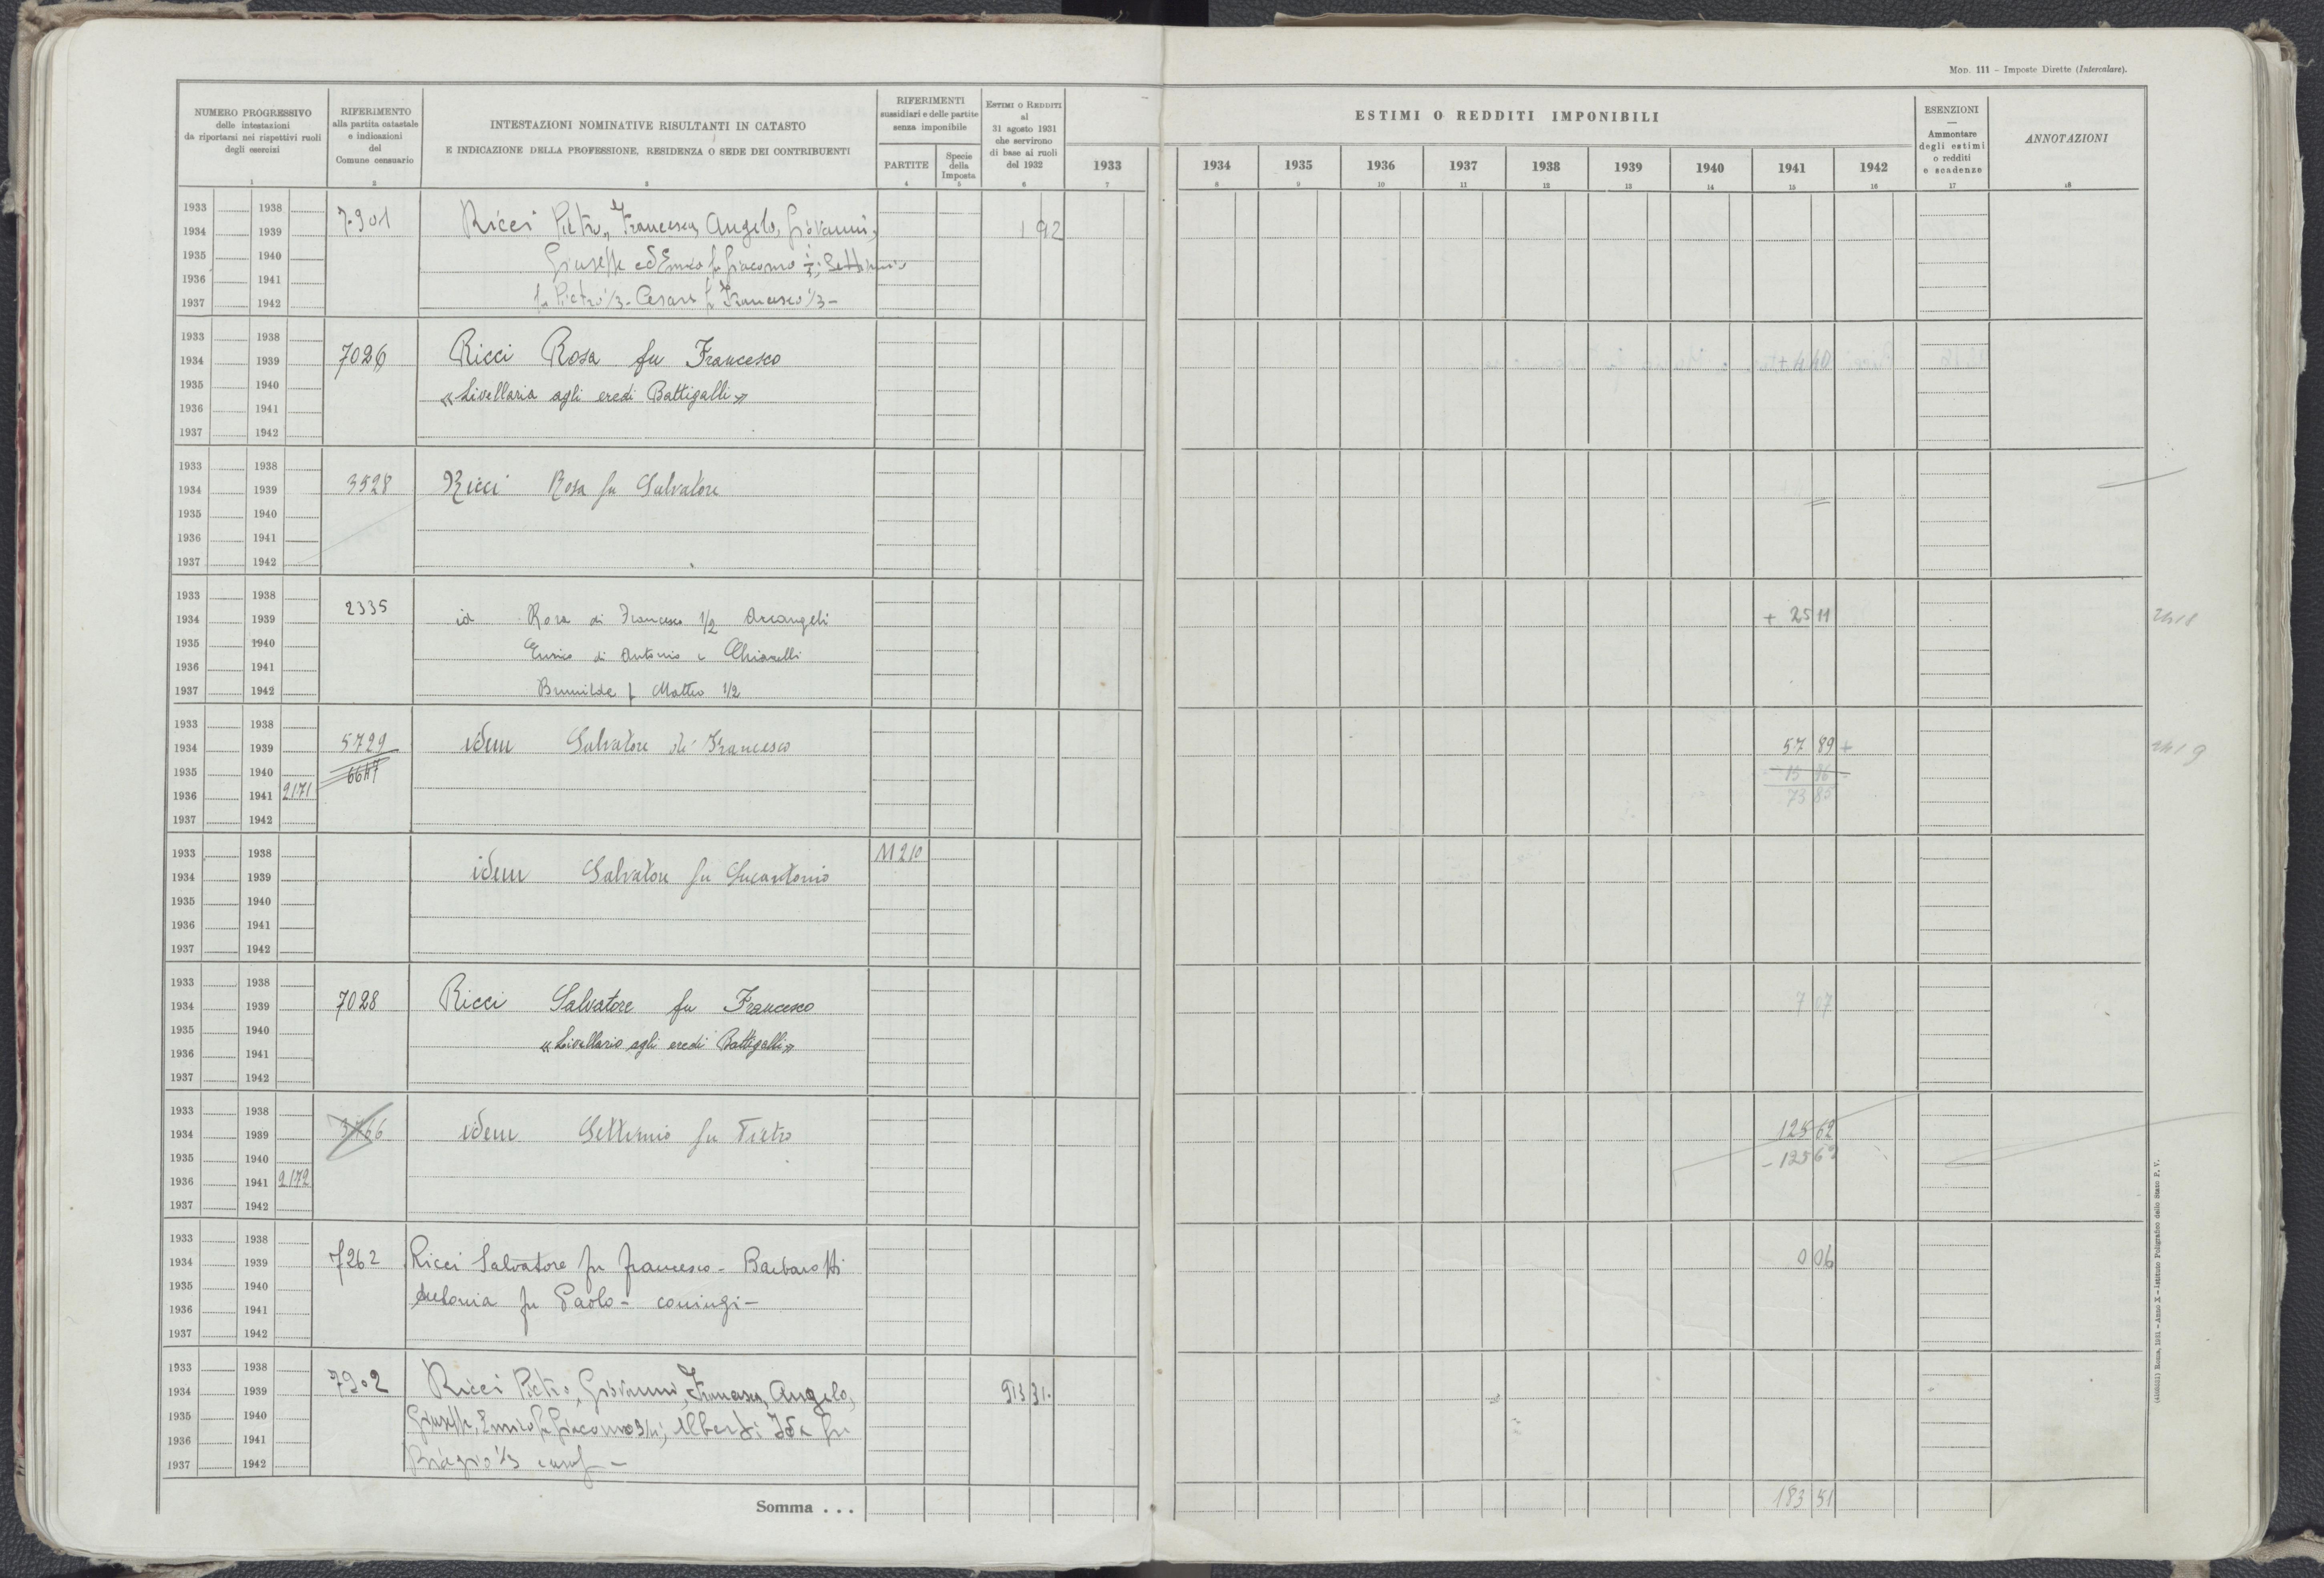 MOD. 111 – Imposte Dirette (Intercalare).
NUMERO PROGRESSIVO
delle intestazioni
da riportarsi nei rispettivi ruoli
degli esercizi
1
RIFERIMENTO
alla partita catastale
e indicazioni
del
Comune censuario
2
INTESTAZIONI NOMINATIVE RISULTANTI IN CATASTO
E INDICAZIONE DELLA PROFESSIONE, RESIDENZA O SEDE DEI CONTRIBUENTI
3
RIFERIMENTI
sussidiari e delle partite
senza imponibile
PARTITE
4
Specie
della
Imposta
5
ESTIMI O REDDITI
al
31 agosto 1931
che servirono
di base ai ruoli
del 1932
6
ESTIMI O REDDITI IMPONIBILI
1933 1934 1935 1936 1937 1938 1939 1940 1941 1942
7 8 9 10 11 12 13 14 15 16
ESENZIONI
—
Ammontare
degli estimi
o redditi
e scadenze
17
ANNOTAZIONI
18
1933 1938
1934 1939 7901 Ricci Pietro, Francesco, Angelo, Giovanni, 1 92
1935 1940 Giuseppe ed Enrico fu Giacomo 1/3; Settimio
1936 1941
1937 1942 fu Pietro 1/3 - Cesare fu Francesco 1/3 -
1933 1938
1934 1939 7026 Ricci Rosa fu Francesco + 4 40
1935 1940 «Livellaria agli eredi Battigalli»
1936 1941
1937 1942
1933 1938
1934 1939 3528 Ricci Rosa fu Salvatore
1935 1940
1936 1941
1937 1942
1933 1938
1934 1939 2335 id Rosa di Francesco 1/2 Arcangeli + 25 11 2418
1935 1940 Enrico di Antonio e Chiarelli
1936 1941
1937 1942 Brunilde f Matteo 1/2
1933 1938
1934 1939 5729 idem Salvatore di Francesco 57 89 + 2419
1935 1940 6647 15 96
1936 1941 2171 73 85
1937 1942
1933 1938 11210
1934 1939 idem Salvatore fu Lucantonio
1935 1940
1936 1941
1937 1942
1933 1938
1934 1939 7028 Ricci Salvatore fu Francesco 7 07
1935 1940 «Livellario agli eredi Battigalli»
1936 1941
1937 1942
1933 1938
1934 1939 3766 idem Settimio fu Pietro 125 62
1935 1940 - 125 62
1936 1941 2172
1937 1942
1933 1938
1934 1939 7262 Ricci Salvatore fu Francesco - Barbarossi 0 06
1935 1940 Antonia fu Paolo - coniugi -
1936 1941
1937 1942
1933 1938
1934 1939 7902 Ricci Pietro, Giovanni, Francesco, Angelo,
1935 1940 Giuseppe, Enrico fu Giacomo Alberti Ida fu
1936 1941
1937 1942 Biagio 1/3
Somma . . . 183 51
Roma, 1931 – Anno X – Istituto Poligrafico dello Stato P. V.